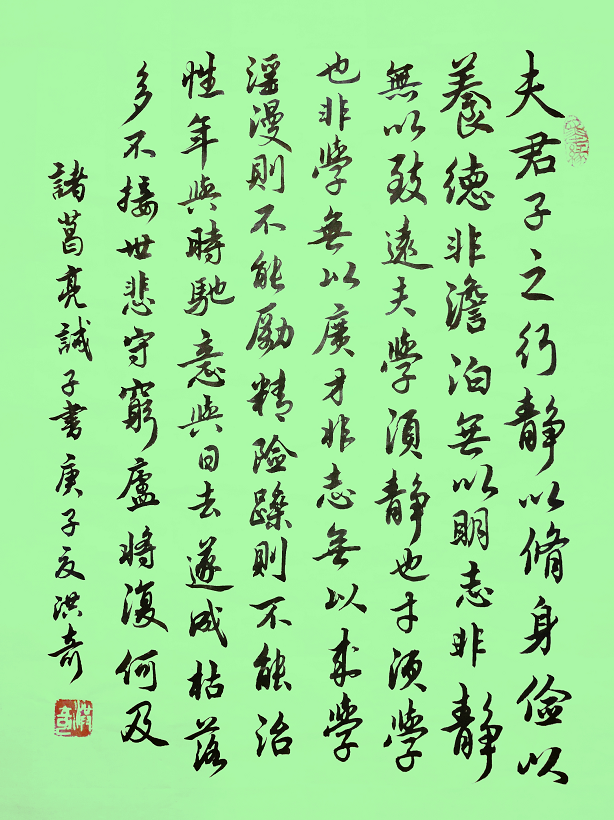 夫君子之行靜以脩身儉以
養德非澹泊無以明志非靜
無以致遠夫學須靜也才須學
也非學無以廣才非志無以成學
淫漫則不能勵精險躁則不能治
性年與時馳意與日去遂成枯落
多不接世悲守窮廬將復何及
諸葛亮誡子書庚子夏洪奇